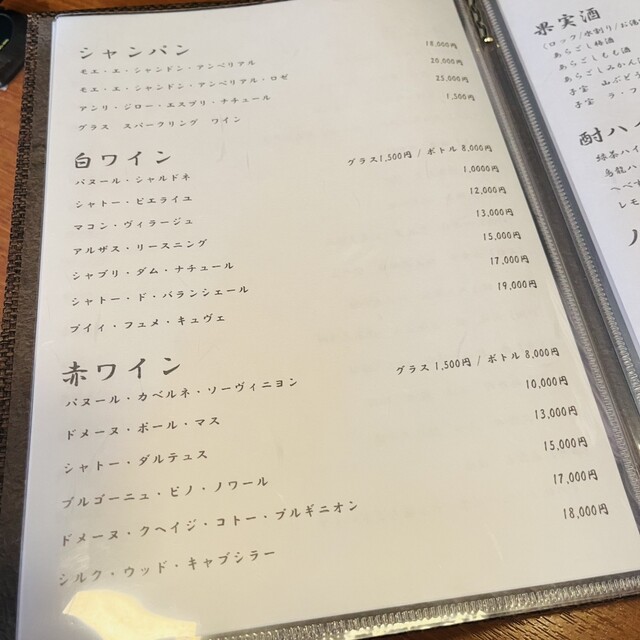 シャンパン
モエ・エ・シャンドン・アンペリアル 18,000円
モエ・エ・シャンドン・アンペリアル・ロゼ 20,000円
アンリ・ジロー・エスプリ・ナチュール 25,000円
グラス スパークリング ワイン 1,500円
白ワイン
バヌール・シャルドネ グラス1,500円 / ボトル 8,000円
シャトー・ピエライユ 1,0000円
マコン・ヴィラージュ 12,000円
アルザス・リースニング 13,000円
シャブリ・ダム・ナチュール 15,000円
シャトー・ド・バランシェール 17,000円
プイィ・フュメ・キュヴェ 19,000円
赤ワイン
バヌール・カベルネ・ソーヴィニヨン グラス 1,500円 / ボトル 8,000円
ドメーヌ・ポール・マス 10,000円
シャトー・ダルテュス 13,000円
ブルゴーニュ・ピノ・ノワール 15,000円
ドメーヌ・クヘイジ・コトー・ブルギニオン 17,000円
シルク・ウッド・キャプシラー 18,000円
果実酒
(ロック/水割り/お湯
あらごし梅酒
あらごしもも酒
あらごしみかん
子宝 山ぶど
子宝 ラ・フ
酎ハイ
緑茶ハイ
烏龍ハ
へべす
レモ